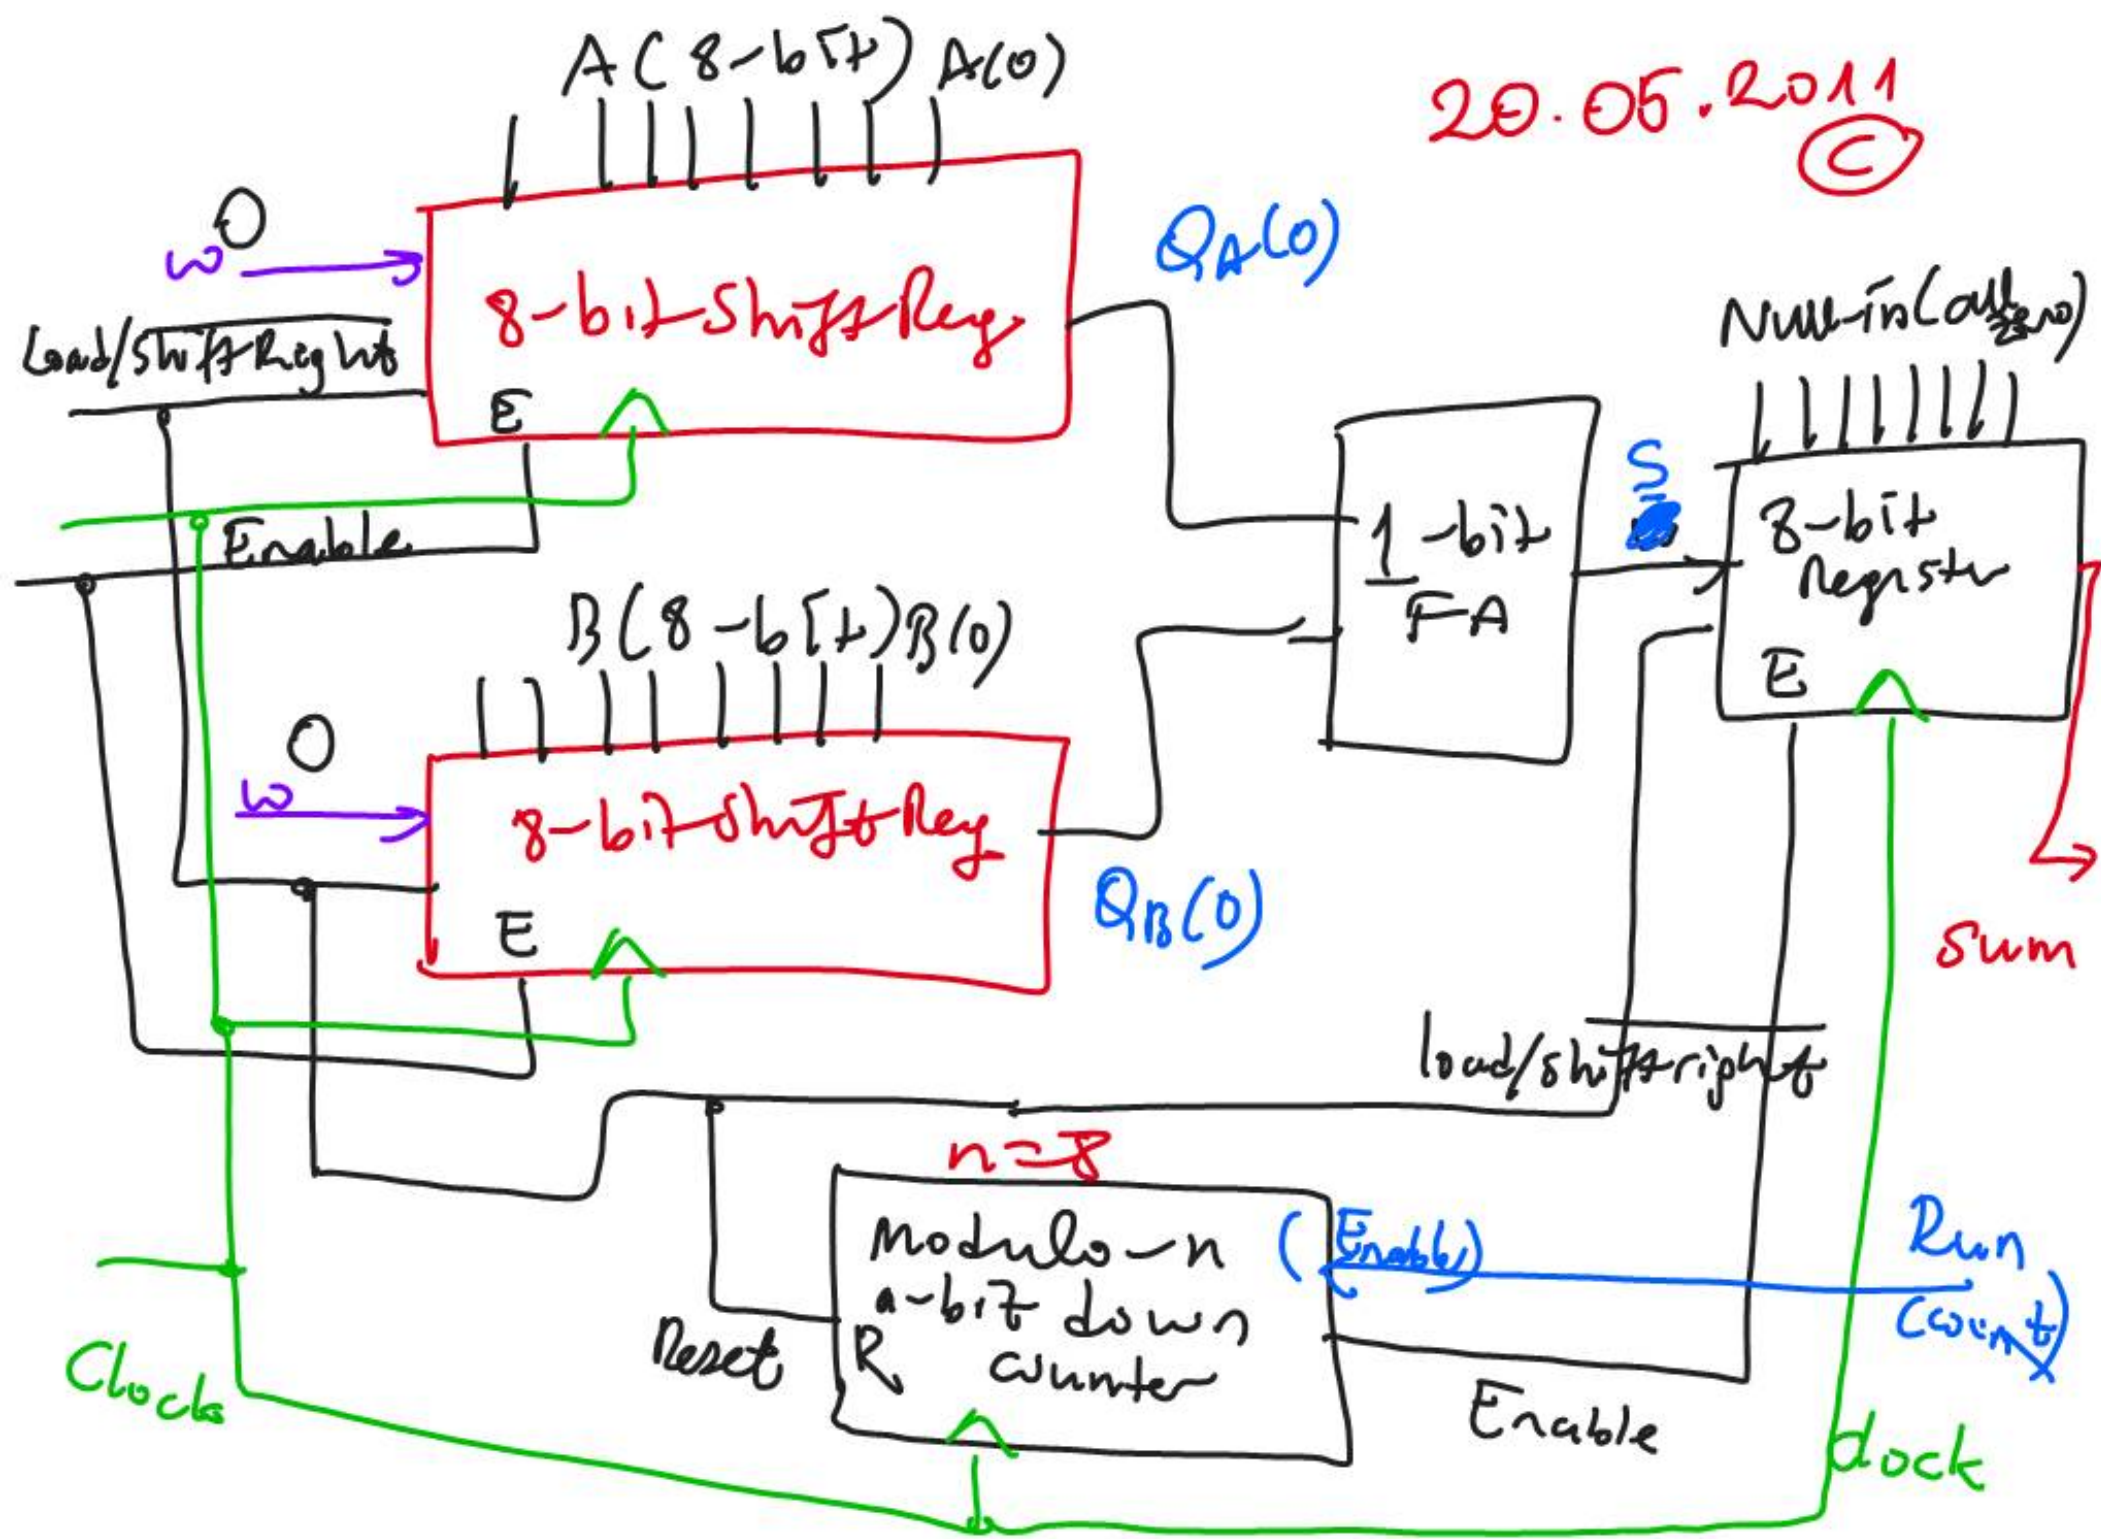 A (8-bit) A(0)
20.05.2011
C
0
w
QA(0)
8-bit-Shift Reg
Load/Shift Right
Null-in (all zero)
E
Enable
S
1-bit
FA
8-bit
Register
E
B (8-bit) B(0)
0
w
8-bit-Shift Reg
QB(0)
E
sum
load/shift right
n=8
Modulo-n
a-bit down
counter
(Enable)
Run
(count)
Reset
R
Enable
Clock
clock